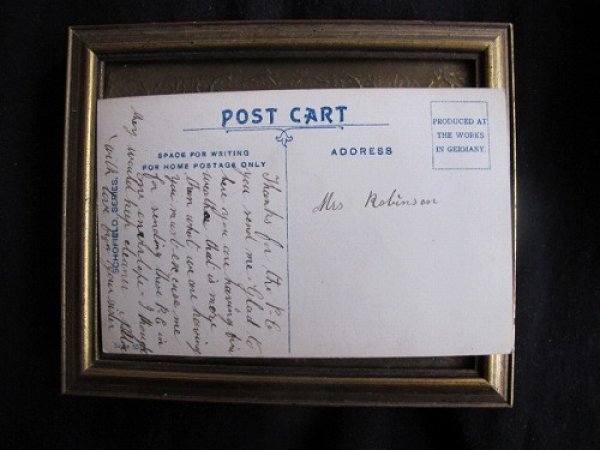 POST CART
SPACE FOR WRITING
FOR HOME POSTAGE ONLY
ADDRESS
PRODUCED AT
THE WORKS
IN GERMANY.
Mrs Robinson
Thanks for the P.C
you send me. Glad to
hear you are having fine
weather that is more
than what we are having
you must excuse me
for sending this P.C in
envelope. I though
they would keep cleaner
with love from your sister
SCHOFIELD SERIES.